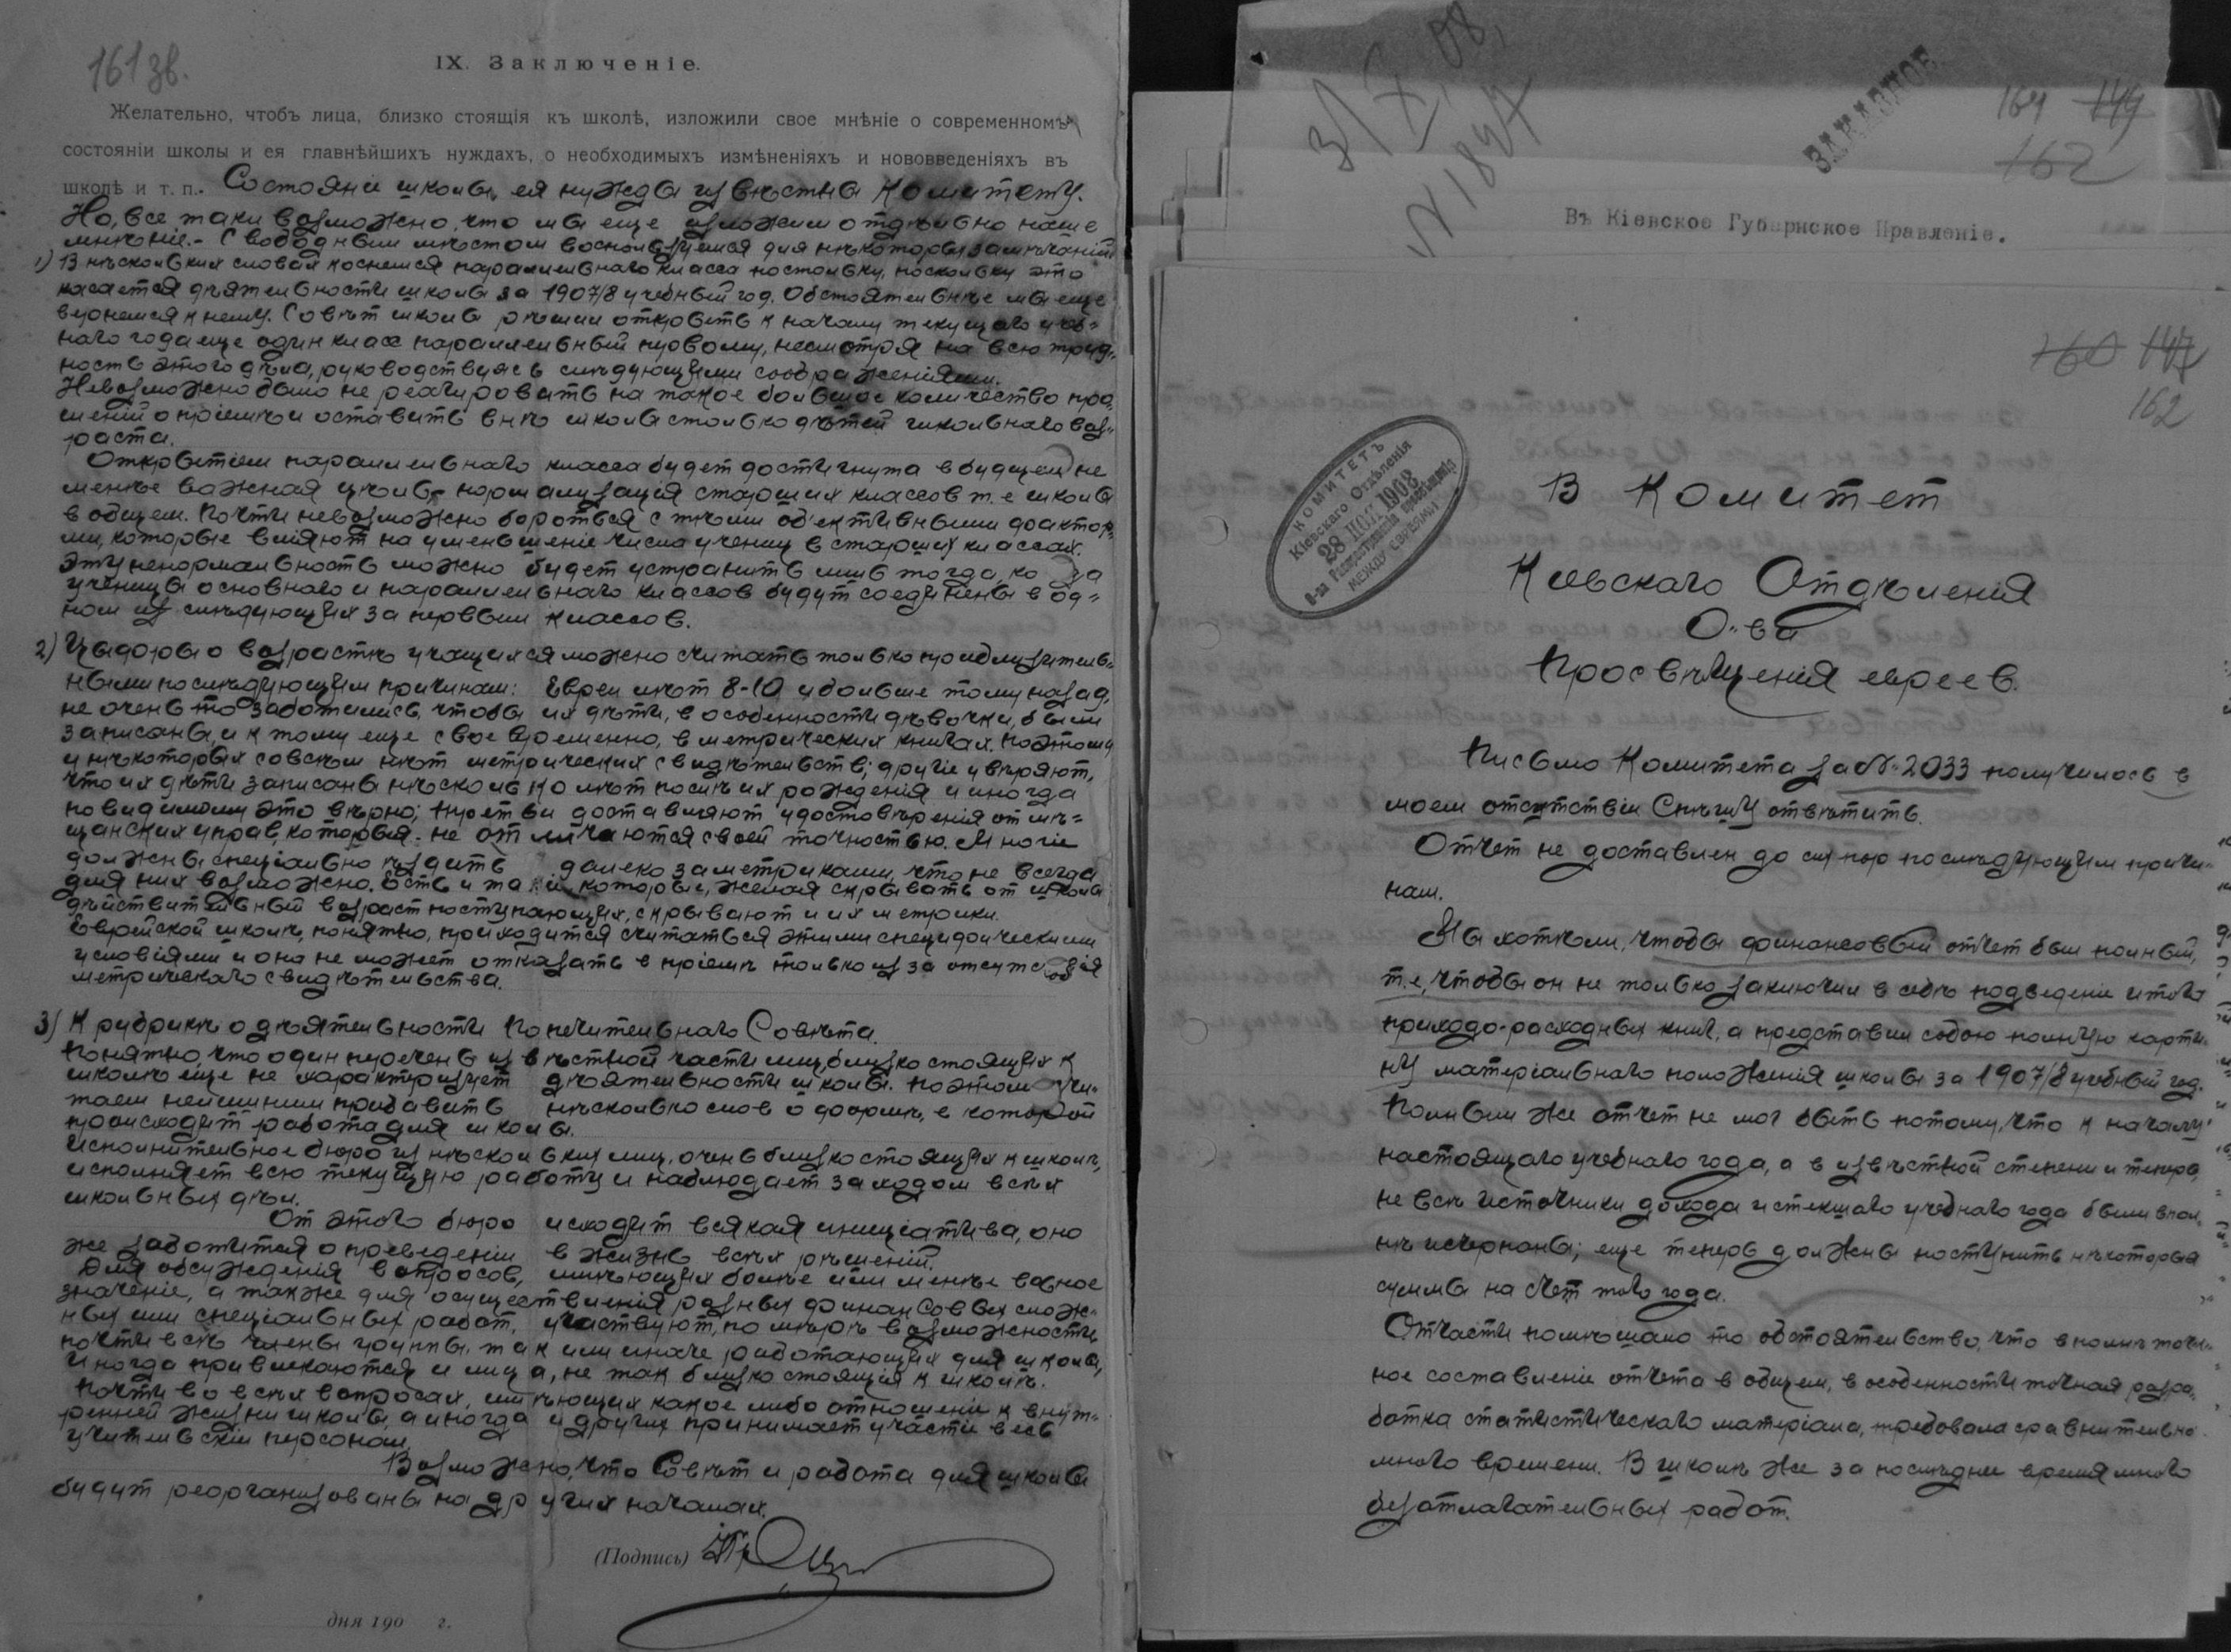 161 зв.
IX. Заключеніе.
Желательно, чтобъ лица, близко стоящія къ школѣ, изложили свое мнѣніе о современномъ
состояніи школы и ея главнѣйшихъ нуждахъ, о необходимыхъ измѣненіяхъ и нововведеніяхъ въ
школѣ и т. п.- Состояніе школы, ея нужда извѣстна Комитету.
Но, все таки возможно, что мы еще изложим отдѣльно наше
мнѣніе.- Свободным мѣстом воспользуемся для нѣкоторых замѣчаній
1) В нѣскольких словах коснемся параллельнаго класса постольку, поскольку это
касается дѣятельности школы за 1907/8 учебный год. Обстоятельнѣе мы еще
вернемся к нему. Совѣт школы рѣшил открыть к началу текущаго учеб-
наго года еще один класс параллельный первому, несмотря на всю труд-
ность этого дѣла, руководствуясь слѣдующими соображеніями.
Невозможно было не реагировать на такое большое количество про-
шеній о пріемѣ и оставить внѣ школы столько дѣтей школьнаго воз-
раста.
Открытіем параллельнаго класса будет достигнута в будущем не
менѣе важная цѣль- нормализація старших классов т. е школы
в общем. Почти невозможно бороться с тѣми об'ективными фактора-
ми, которые вліяют на уменьшеніе числа учениц в старших классах.
Эту ненормальность можно будет устранить лишь тогда, ко да
ученицы основного и параллельнаго классов будут соединены в од-
ном из слѣдующих за первым классов.
2) Цыфры о возрастѣ учащихся можно считать только приблизитель-
ными по слѣдующим причинам: Евреи лѣт 8-10 и больше тому назад,
не очень то заботились, чтобы их дѣти, в особенности дѣвочки, были
записаны, и к тому еще своевременно, в метрических книгах. Поэтому
у нѣкоторых совсѣм нѣт метрических свидѣтельств; другіе увѣряют,
что их дѣти записаны нѣсколько лѣт послѣ их рожденія и иногда
повидимому это вѣрно; третьи доставляют удостовѣренія от мѣ-
щанских управ, которыя не отличаются своей точностью. Многіе
должны спеціально ѣздить далеко за метриками, что не всегда
для них возможно. Есть и такіе, которые, желая скрывать от школы
дѣйствительный возраст поступающих, скрывают и их метрики.
Еврейской школѣ, понятно, приходится считаться этими специфическими
условіями и она не может отказать в пріемѣ только из за отсутствія
метрическаго свидѣтельства.
3) К рубрикѣ о дѣятельности Попечительнаго Совѣта.
Понятно, что один перечень извѣстной части лиц, близко стоящих к
школѣ еще не характеризует дѣятельности школы. Поэтому счи-
таем нелишним прибавить нѣсколько слов о формѣ, в которой
происходит работа для школы.
Исполнительное бюро из нѣскольких лиц, очень близко стоящих к школѣ,
исполняет всю текущую работу и наблюдает за ходом всѣх
школьных дѣл.
От этого бюро исходит всякая иниціатива, оно
же заботится о проведеніи в жизнь всѣх рѣшеній.
Для обсужденія вопросов, имѣющих болѣе или менѣе важное
значеніе, а также для осуществленія разных финансовых слож-
ных или спеціальных работ, участвуют, по мѣрѣ возможности,
почти всѣ члены группы, так или иначе работающих для школы,
Иногда привлекаются и лица, не так близко стоящія к школѣ.
Почти во всѣх вопросах, имѣющих какое либо отношеніе к внут-
ренней жизни школы, а иногда и других принимает участіе весь
учительскій персонал.
Возможно, что Совѣт и работа для школы
будут реорганизованы на других началах.
(Подпись)
дня 190 г.
31/X 08,
N 1847
ЗАКАЗНОЕ
164 149
162
Въ Кіевское Губернское Правленіе.
160 147
162
КОМИТЕТЪ
Кіевскаго Отдѣленія
28 НОЯ. 1908
О-ва Распространенія просвѣщенія
МЕЖДУ ЕВРЕЯМИ
В Комитет
Киевскаго Отдѣленія
О-ва
Просвѣщенія евреев.
Письмо Комитета за № 2033 получилось в
моем отсутствіи Спѣшу отвѣтить.
Отчет не доставлен до сих пор по слѣдующим причи-
нам.
Мы хотѣли, чтобы финансовый отчет был полный,
т. е, чтобы он не только заключил в себѣ подведеніе итого
приходо-расходных книг, а представил собою полную карти-
ну матеріальнаго положенія школы за 1907/8 учебный год.
Полным же отчет не мог быть потому, что к началу
настоящаго учебнаго года, а в извѣстной степени и теперь,
не всѣ источники дохода истекшаго учебнаго года были впол-
нѣ исчерпаны; еще теперь должны поступить нѣкоторыя
суммы на счет того года.
Отчасти помѣшало то обстоятельство, что вполнѣ точ-
ное составленіе отчета в общем, в особенности точная разра-
ботка статистическаго матеріала, требовала сравнительно
много времени. В школѣ же за послѣднее время много
безотлагательных работ.